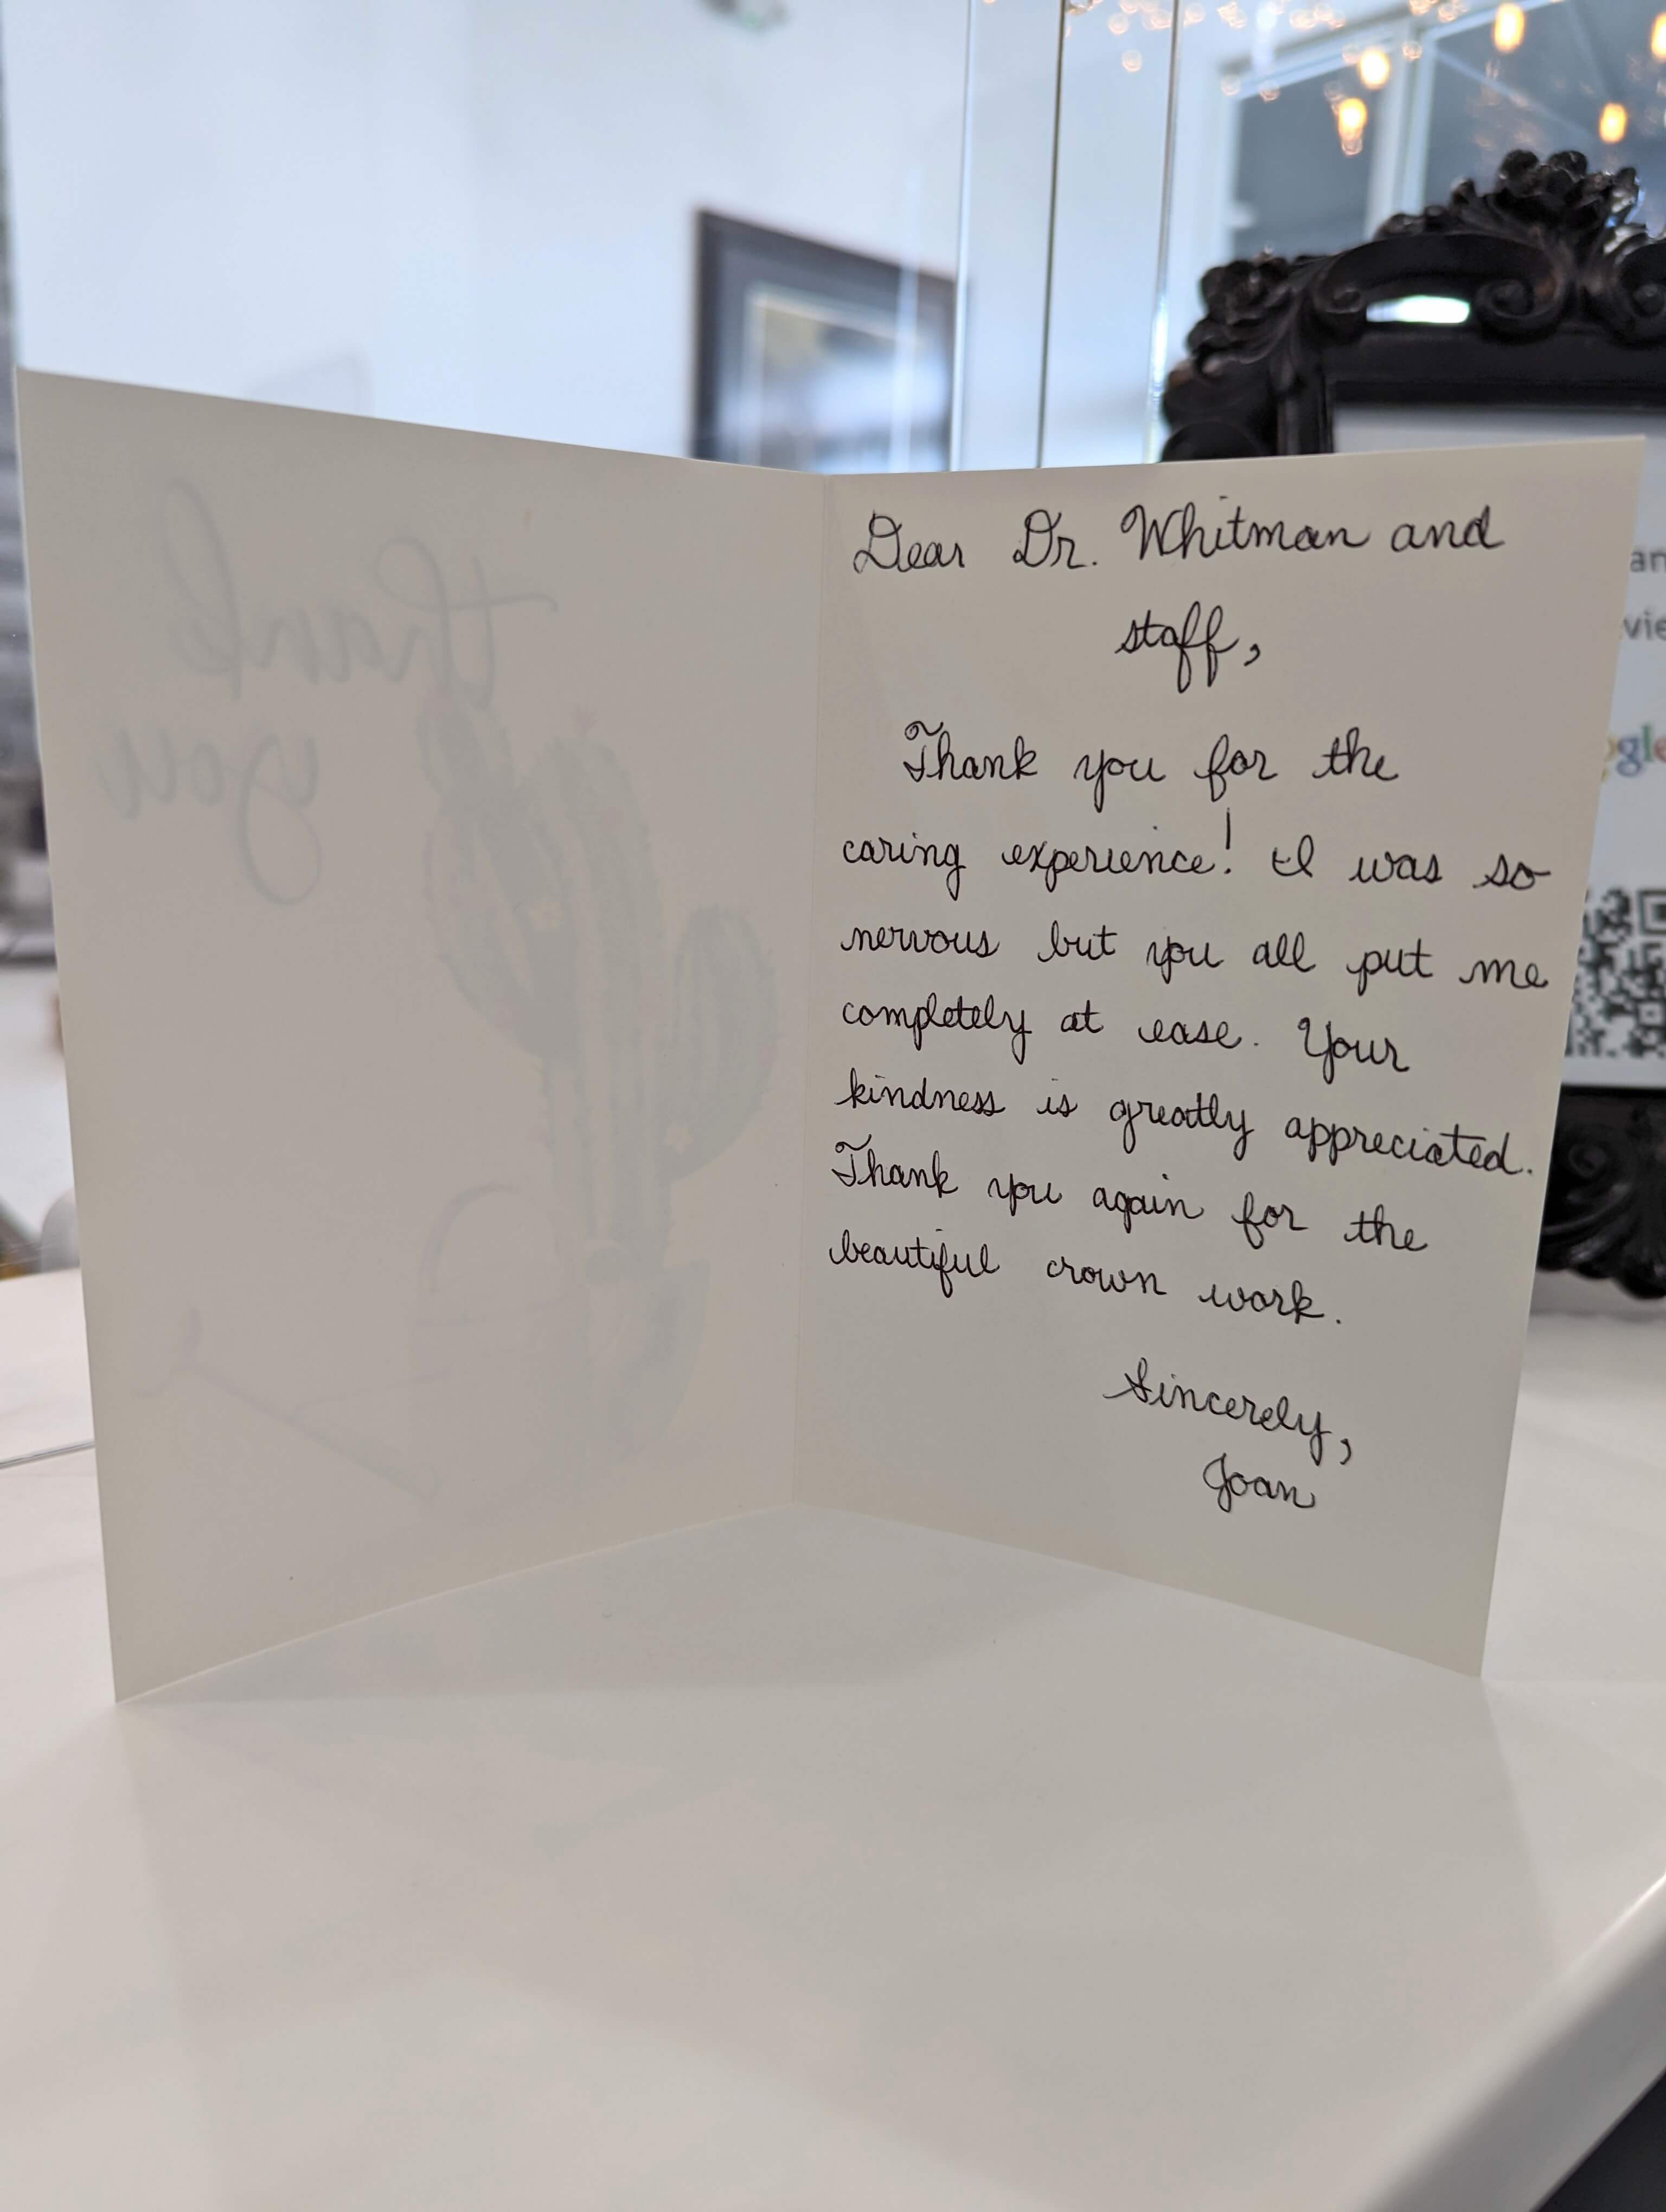 thank
you
Dear Dr. Whitman and
staff,
Thank you for the
caring experience! I was so
nervous but you all put me
completely at ease. Your
kindness is greatly appreciated.
Thank you again for the
beautiful crown work.
Sincerely,
Joan